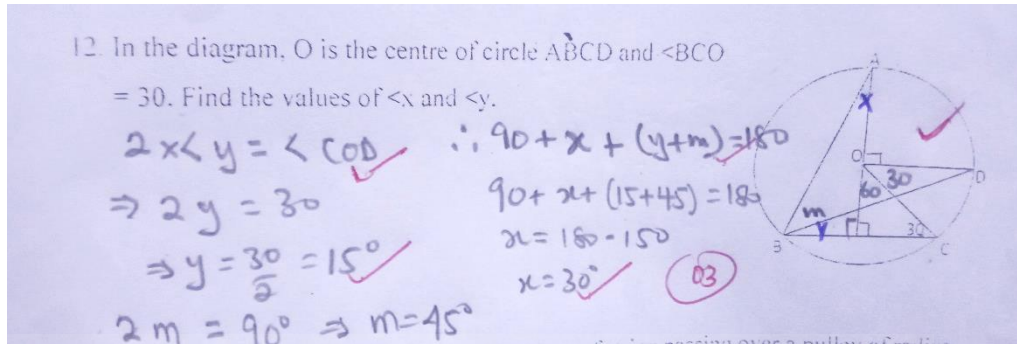 12. In the diagram, O is the centre of circle ABCD and <BCO
= 30. Find the values of <x and <y.
2 x < y = < COD
⇒ 2y = 30
⇒ y = 30/2 = 15°
2m = 90° ⇒ m = 45°
∴ 90 + x + (y+m) = 180
90 + x + (15+45) = 180
x = 180 - 150
x = 30°
03
A
X
O
60
30
D
m
y
30
B
C
passing over a pulley of radius